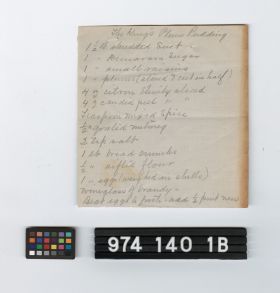 The King's Plum Pudding
1 ½ lb shredded Suet -
1 " Demarara Sugar
1 " small raisins
1 " plums (stoned & cut in half)
4 oz citron thinly sliced
4 " candied peel " "
Teaspoon Mixed Spice
½ grated nutmeg
2 tsp salt
1 lb bread crumbs
½ " sifted flour
1 " eggs (weighed in shells)
Wineglass of brandy -
Beat eggs to froth - add ½ pint new
974 140 1B